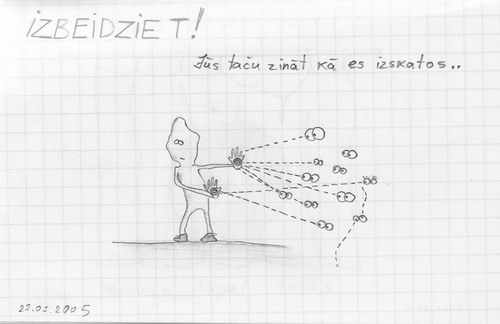 IZBEIDZIET!
Jūs taču zināt kā es izskatos..
27.07.2005